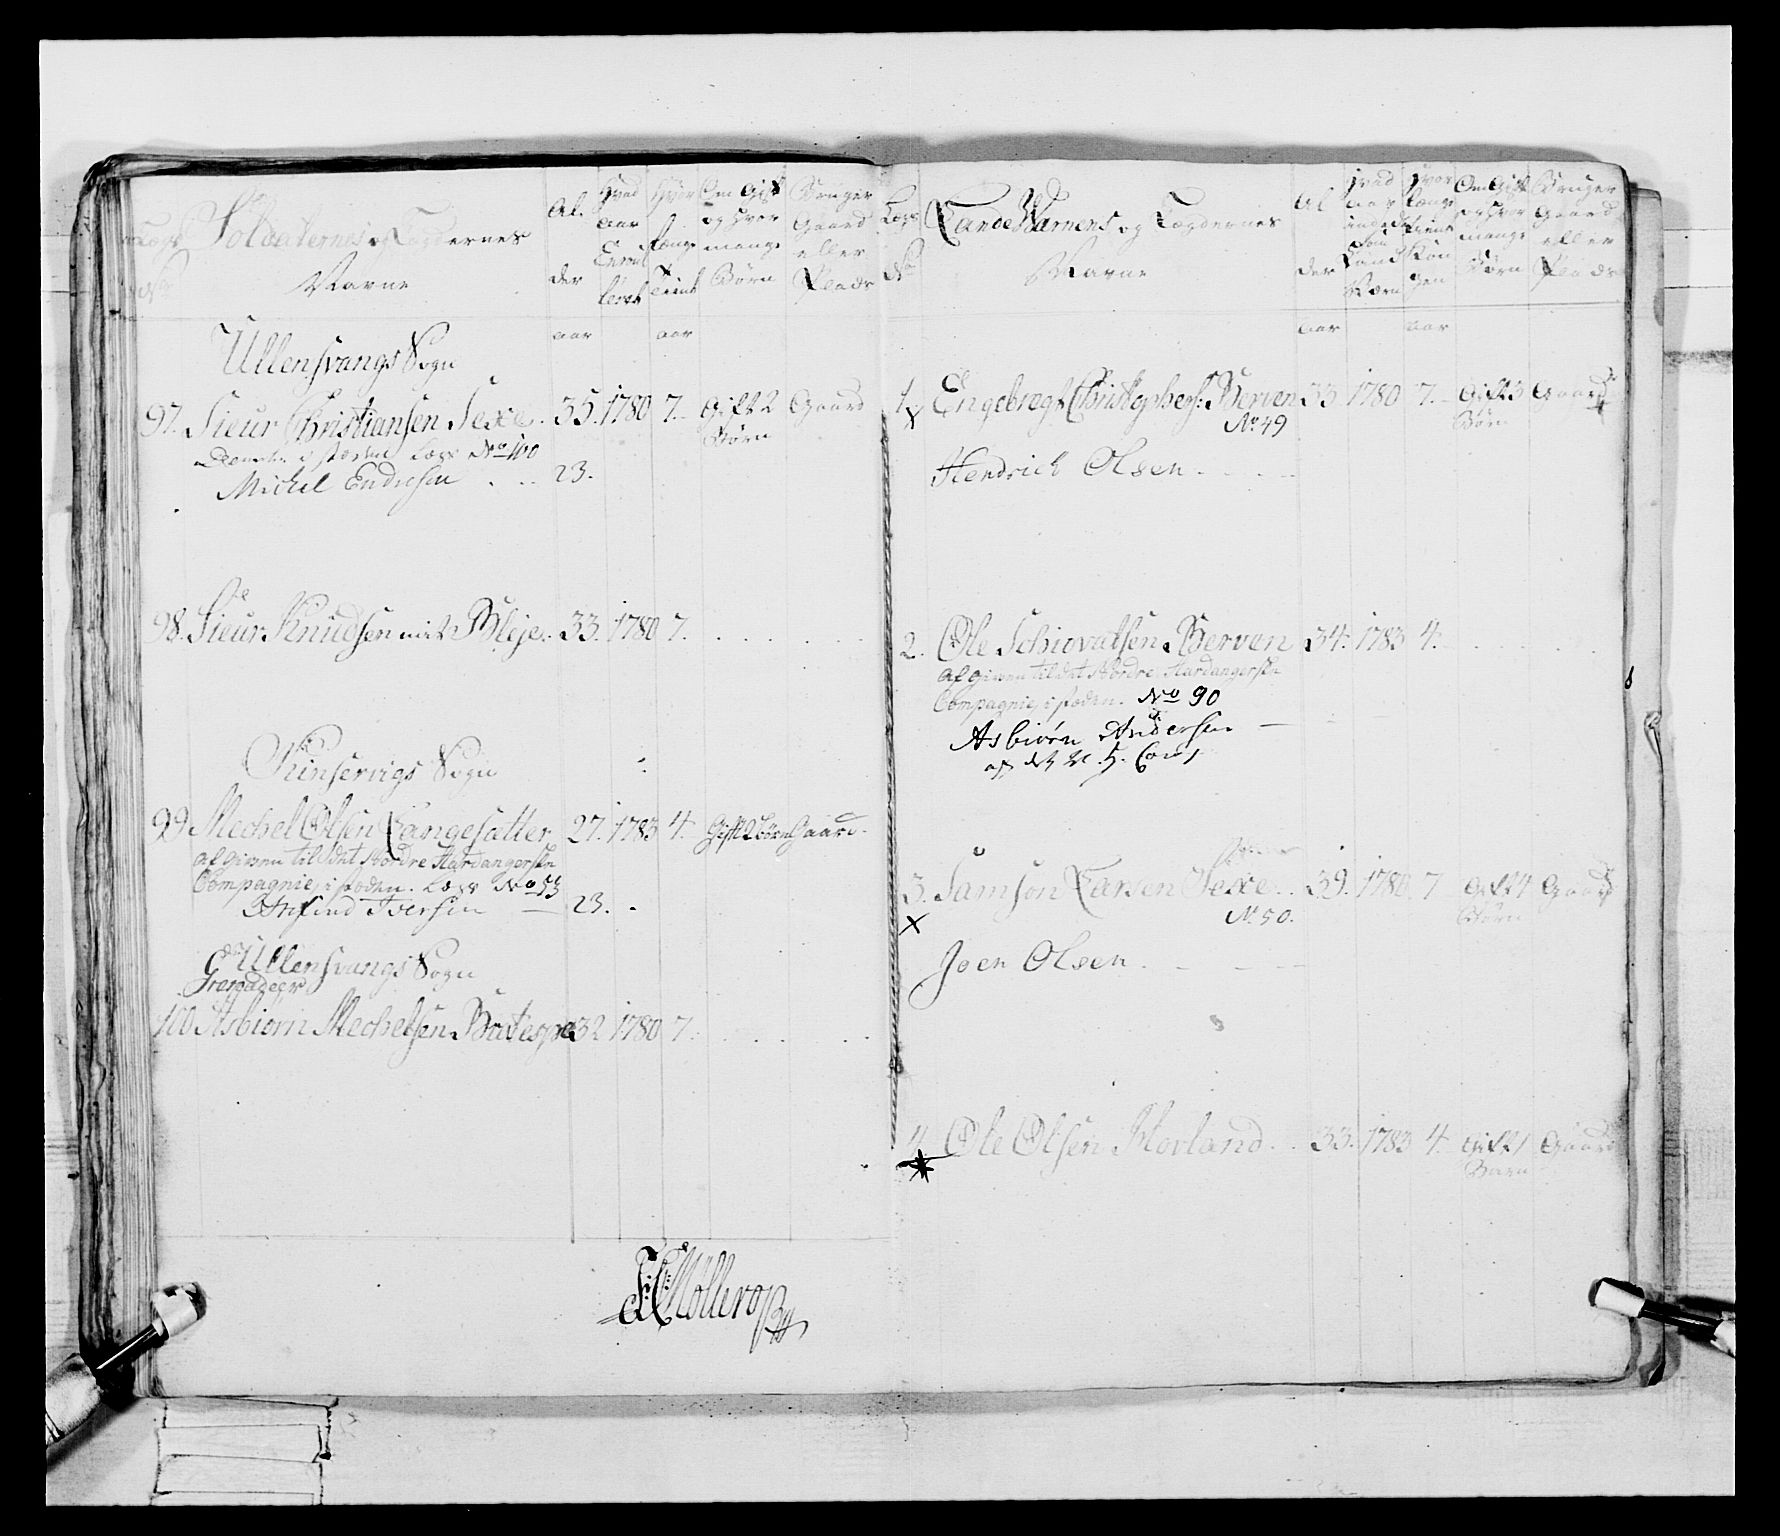 Lægs No
Soldaternes og Lægdernes Navne
Al der
Hvad aar Enroulleret
Hvor Længe Tient
Om Gift og Hvor mange Børn
Bruger Gaard eller Plads
aar aar
Ullensvangs Sogn
97. Sieur Christiansen Sexe. 35. 1780 7. Gift 2 Børn Gaard
Læg No 100
Michel Endresen . .. 23.
98. Sieur Knudsen Bleje. 33. 1780 7. . . . . . .
Kinservigs Sogn
99 Mechel Olsen Langesatter 27. 1783 4. Gift 2 Børn Gaard.
afgiven til det Nordre Hardangerske
Compagnie, i stæden. Læg No 53
Iversen — 23.
Ullensvangs Sogn
Grenadeer
100 Asbiørn Mechelsen 32 1780 7. . . . . .
Møllerop
Lægs No
Lande Wærnens og Lægdernes Navne
Al der
Hvad aar indsadt Som Land Værn
Hvor Længe tient Kongen
Om Gift og Hvor mange Børn
Bruger Gaard eller Plads
aar aar
1. Engebregt Christophers: Berven 33 1780 7. Gift 3 Børn Gaard
x No 49
Hendrich Olsen . . . .
2. Ole Schiovatsen Berven 34. 1783 4. . . . . .
afgiven til det Nordre Hardangerske
Compagnie, i stæden. No 90
Asbiørn Andersen —
3. Samson Larsen Sexe. . 39. 1780. 7 Gift 4 Børn Gaard
x No 50.
Joen Olsen . – – –
4 Ole Olsen Hovland . . 33. 1783 4. Gift 1 Barn Gaard